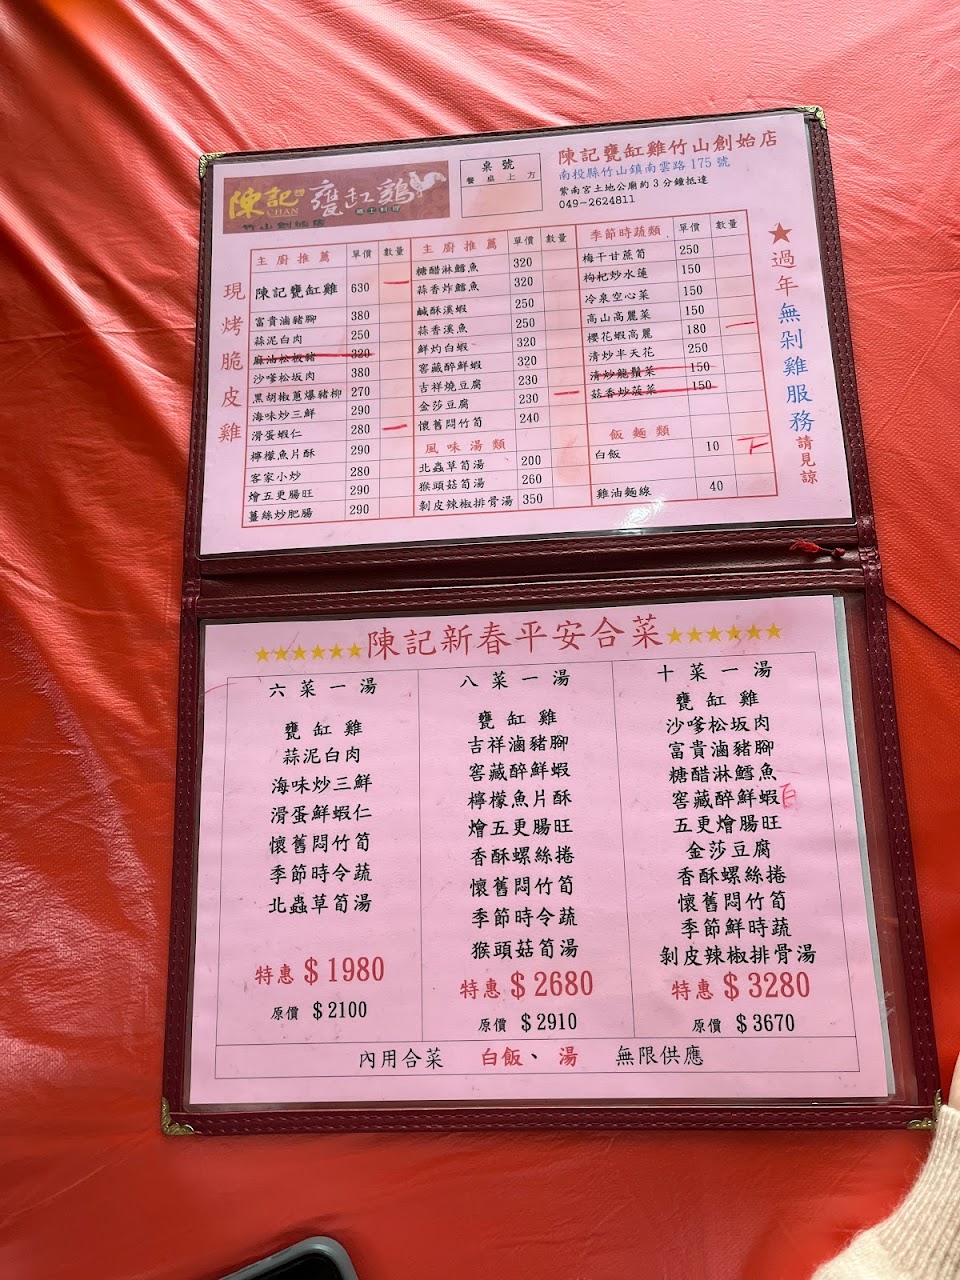 陳記 CHAN 甕缸鷄
鄉土料理
竹山創始店
桌號
餐桌上方
陳記甕缸雞竹山創始店
南投縣竹山鎮南雲路175號
紫南宮土地公廟約3分鐘抵達
049-2624811
現烤脆皮雞
主廚推薦 單價 數量
陳記甕缸雞 630
富貴滷豬腳 380
蒜泥白肉 250
麻油松板豬 320
沙嗲松坂肉 380
黑胡椒蔥爆豬柳 270
海味炒三鮮 290
滑蛋蝦仁 280
檸檬魚片酥 290
客家小炒 280
燴五更腸旺 290
薑絲炒肥腸 290
主廚推薦 單價 數量
糖醋淋鱈魚 320
蒜香炸鱈魚 320
鹹酥溪蝦 250
蒜香溪魚 250
鮮灼白蝦 320
窖藏醉鮮蝦 320
吉祥燒豆腐 230
金莎豆腐 230
懷舊悶竹筍 240
風味湯類
北蟲草筍湯 200
猴頭菇筍湯 260
剝皮辣椒排骨湯 350
季節時蔬類 單價 數量
梅干甘蔗筍 250
枸杞炒水蓮 150
冷泉空心菜 150
高山高麗菜 150
櫻花蝦高麗 180
清炒半天花 250
清炒龍鬚菜 150
菇香炒菠菜 150
飯麵類
白飯 10
雞油麵線 40
★過年無剁雞服務請見諒
★★★★★★陳記新春平安合菜★★★★★★
六菜一湯
甕缸雞
蒜泥白肉
海味炒三鮮
滑蛋鮮蝦仁
懷舊悶竹筍
季節時令蔬
北蟲草筍湯
特惠 $1980
原價 $2100
八菜一湯
甕缸雞
吉祥滷豬腳
窖藏醉鮮蝦
檸檬魚片酥
燴五更腸旺
香酥螺絲捲
懷舊悶竹筍
季節時令蔬
猴頭菇筍湯
特惠 $2680
原價 $2910
十菜一湯
甕缸雞
沙嗲松坂肉
富貴滷豬腳
糖醋淋鱈魚
窖藏醉鮮蝦
五更燴腸旺
金莎豆腐
香酥螺絲捲
懷舊悶竹筍
季節鮮時蔬
剝皮辣椒排骨湯
特惠 $3280
原價 $3670
內用合菜 白飯、湯 無限供應